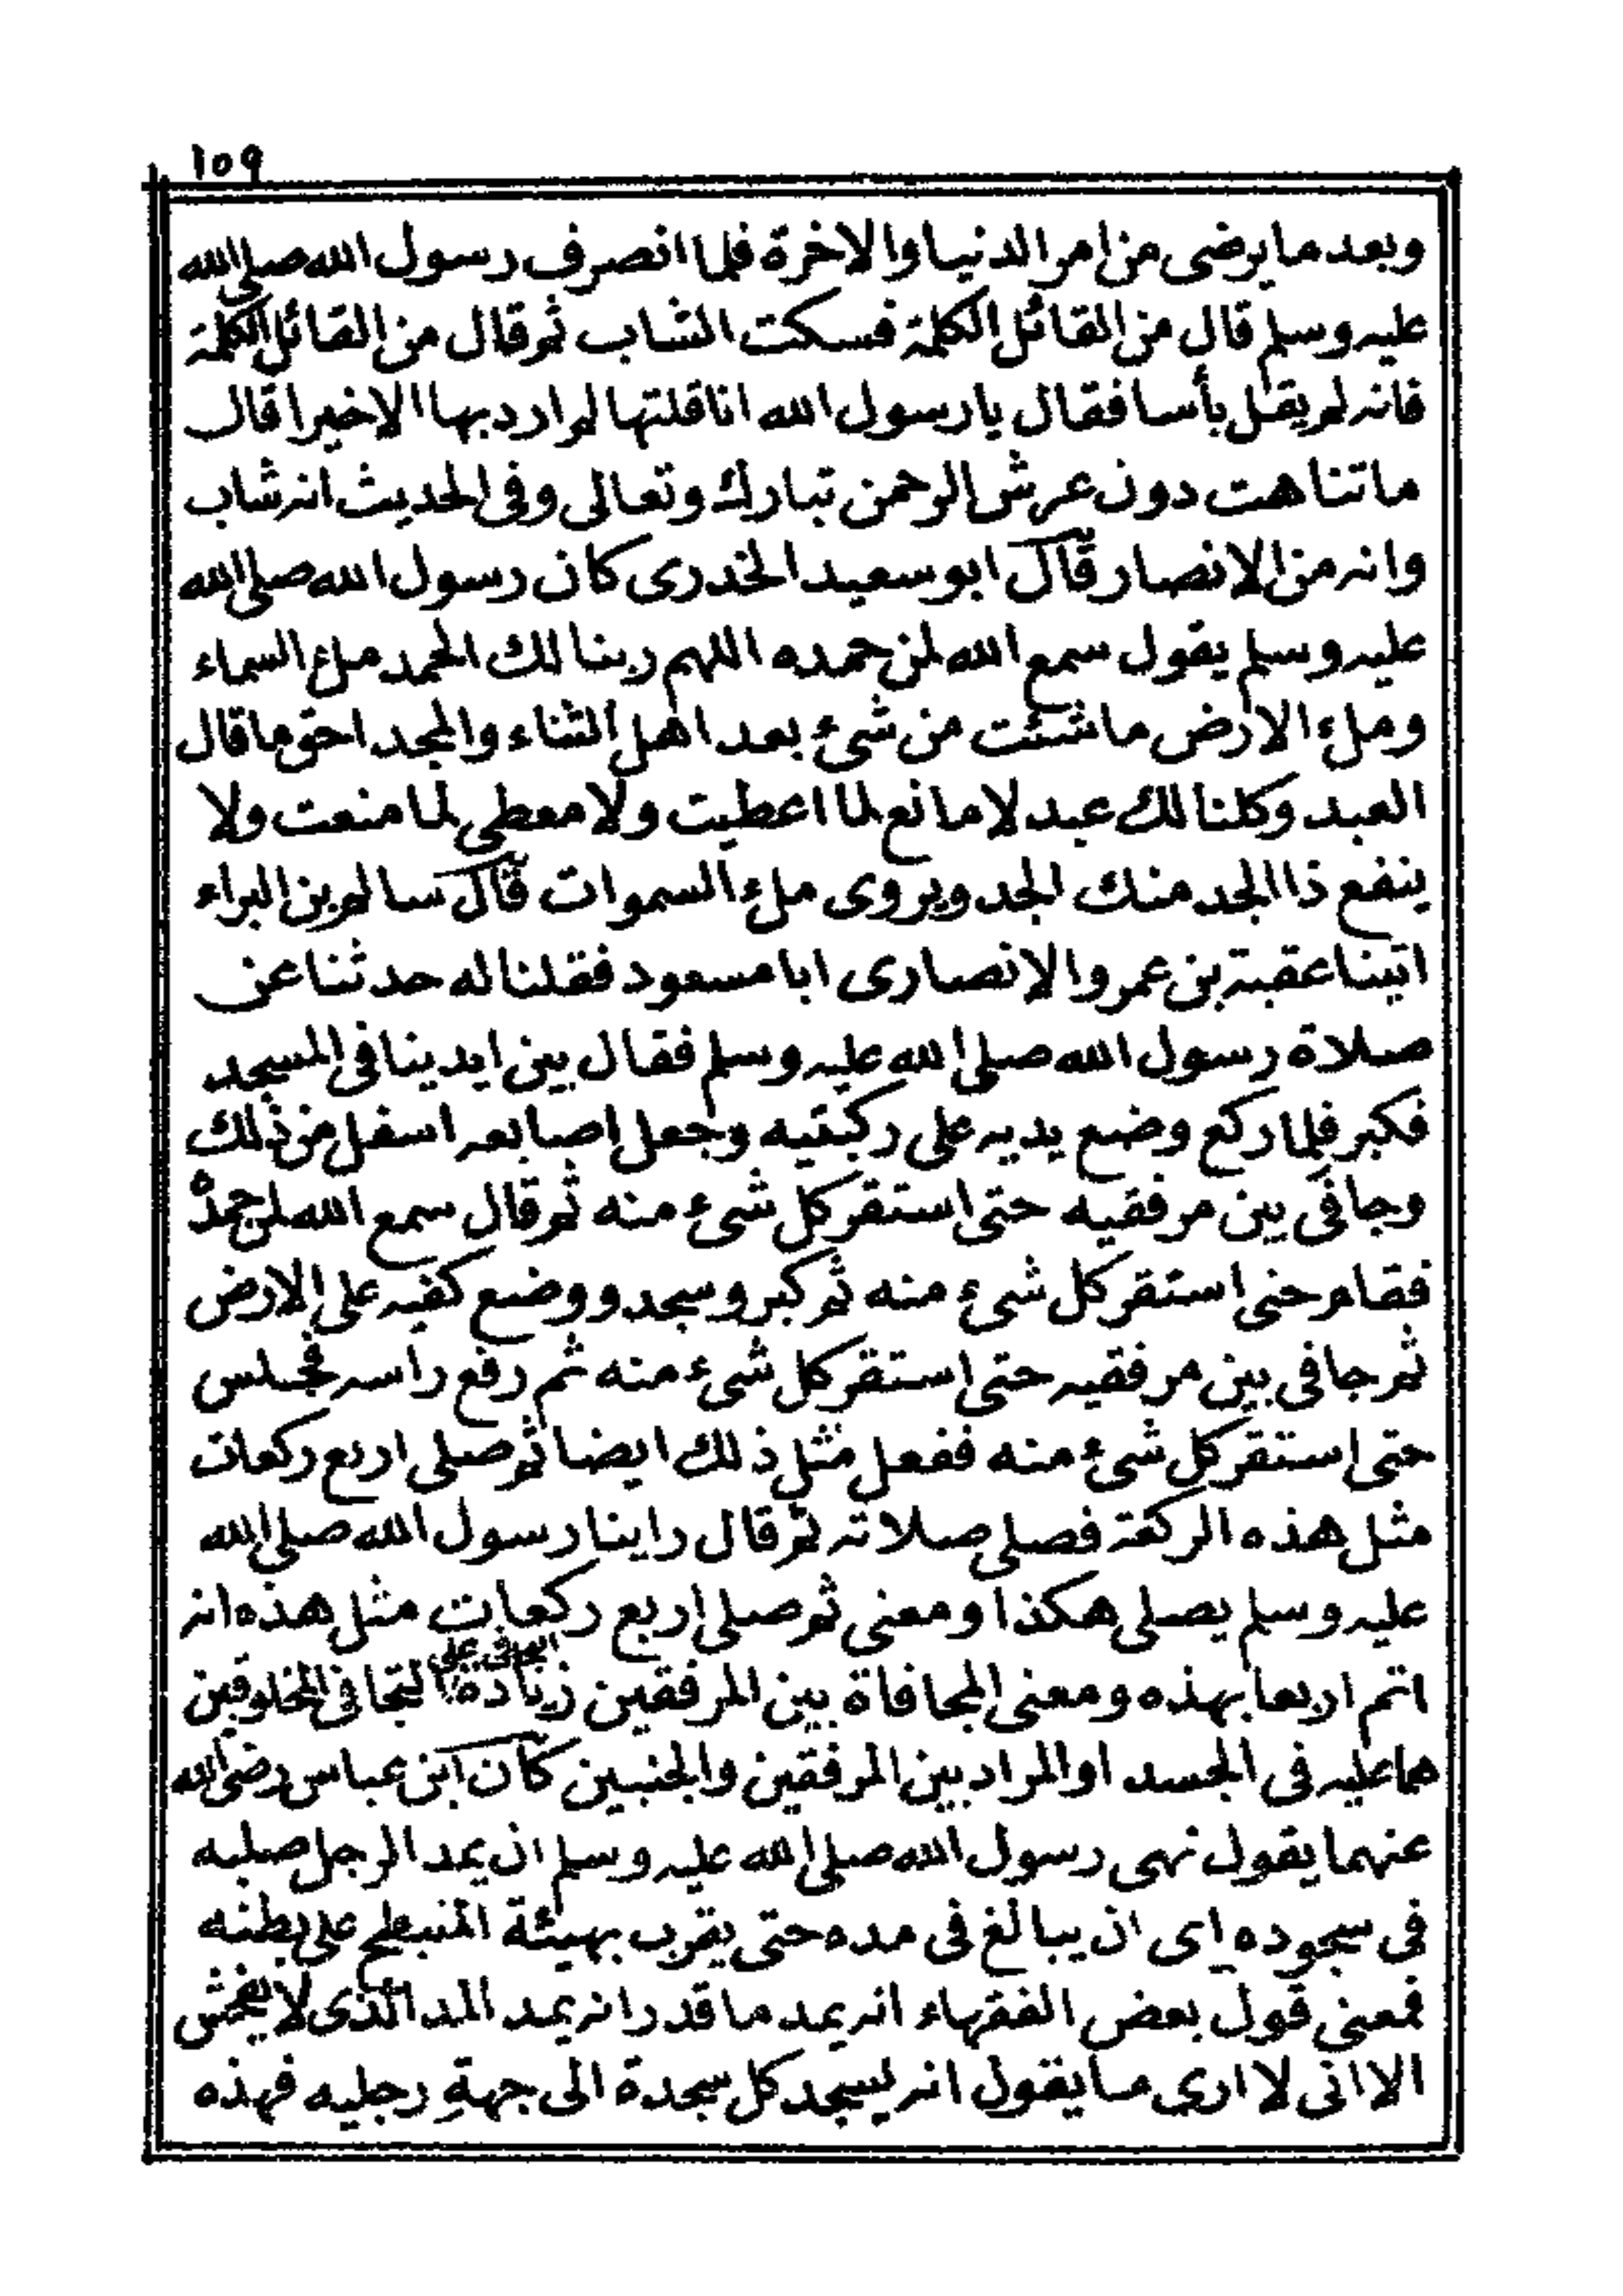 ١٥٩
وبعد ما يرضى من امر الدنيا والاخرة فلما انصرف رسول الله صلى الله
عليه وسلم قال من القائل الكلمة فسكت الشاب ثم قال من القائل الكلمة
فانه لم يقل بأسا فقال يا رسول الله انا قلتها لم ارد بها الا خيرا قال
ما تناهت دون عرش الرحمن تبارك وتعالى وفى الحديث انه شاب
وانه من الانصار قال ابو سعيد الخدرى كان رسول الله صلى الله
عليه وسلم يقول سمع الله لمن حمده اللهم ربنا لك الحمد ملء السماء
وملء الارض ما شئت من شىء بعد اهل الثناء والمجد احق ما قال
العبد وكلنا لك عبد لا مانع لما اعطيت ولا معطى لما منعت ولا
ينفع ذا الجد منك الجد ويروى ملء السموات قال سالم بن البراء
اتينا عقبة بن عمر والانصارى ابا مسعود فقلنا له حدثنا عن
صلاة رسول الله صلى الله عليه وسلم فقال بين ايدينا فى المسجد
فكبر فلما ركع وضع يديه على ركبتيه وجعل اصابعه اسفل من ذلك
وجافى بين مرفقيه حتى استقر كل شىء منه ثم قال سمع الله لمن حمده
فقام حتى استقر كل شىء منه ثم كبر وسجد ووضع كفيه على الارض
ثم جافى بين مرفقيه حتى استقر كل شىء منه ثم رفع راسه فجلس
حتى استقر كل شىء منه ففعل مثل ذلك ايضا ثم صلى اربع ركعات
مثل هذه الركعة فصلى صلاته ثم قال راينا رسول الله صلى الله
عليه وسلم يصلى هكذا ومعنى ثم صلى اربع ركعات مثل هذه انه
اتم اربعا بهذه ومعنى المجافاة بين المرفقين زيادة التجافى على التجافى المخلوقين
هما عليه فى الجسد او المراد بين المرفقين والجنبين كان ابن عباس رضى الله
عنهما يقول نهى رسول الله صلى الله عليه وسلم ان يمد الرجل صلبه
فى سجوده اى ان يبالغ فى مده حتى يقرب بهيئة المنبطح على بطنه
فمعنى قول بعض الفقهاء انه يمد ما قدر انه يمد المد الذى لا يفحش
الا انى لا ارى ما يقول انه ليسجد كل سجدة الى جهةِ رجليه فهذه